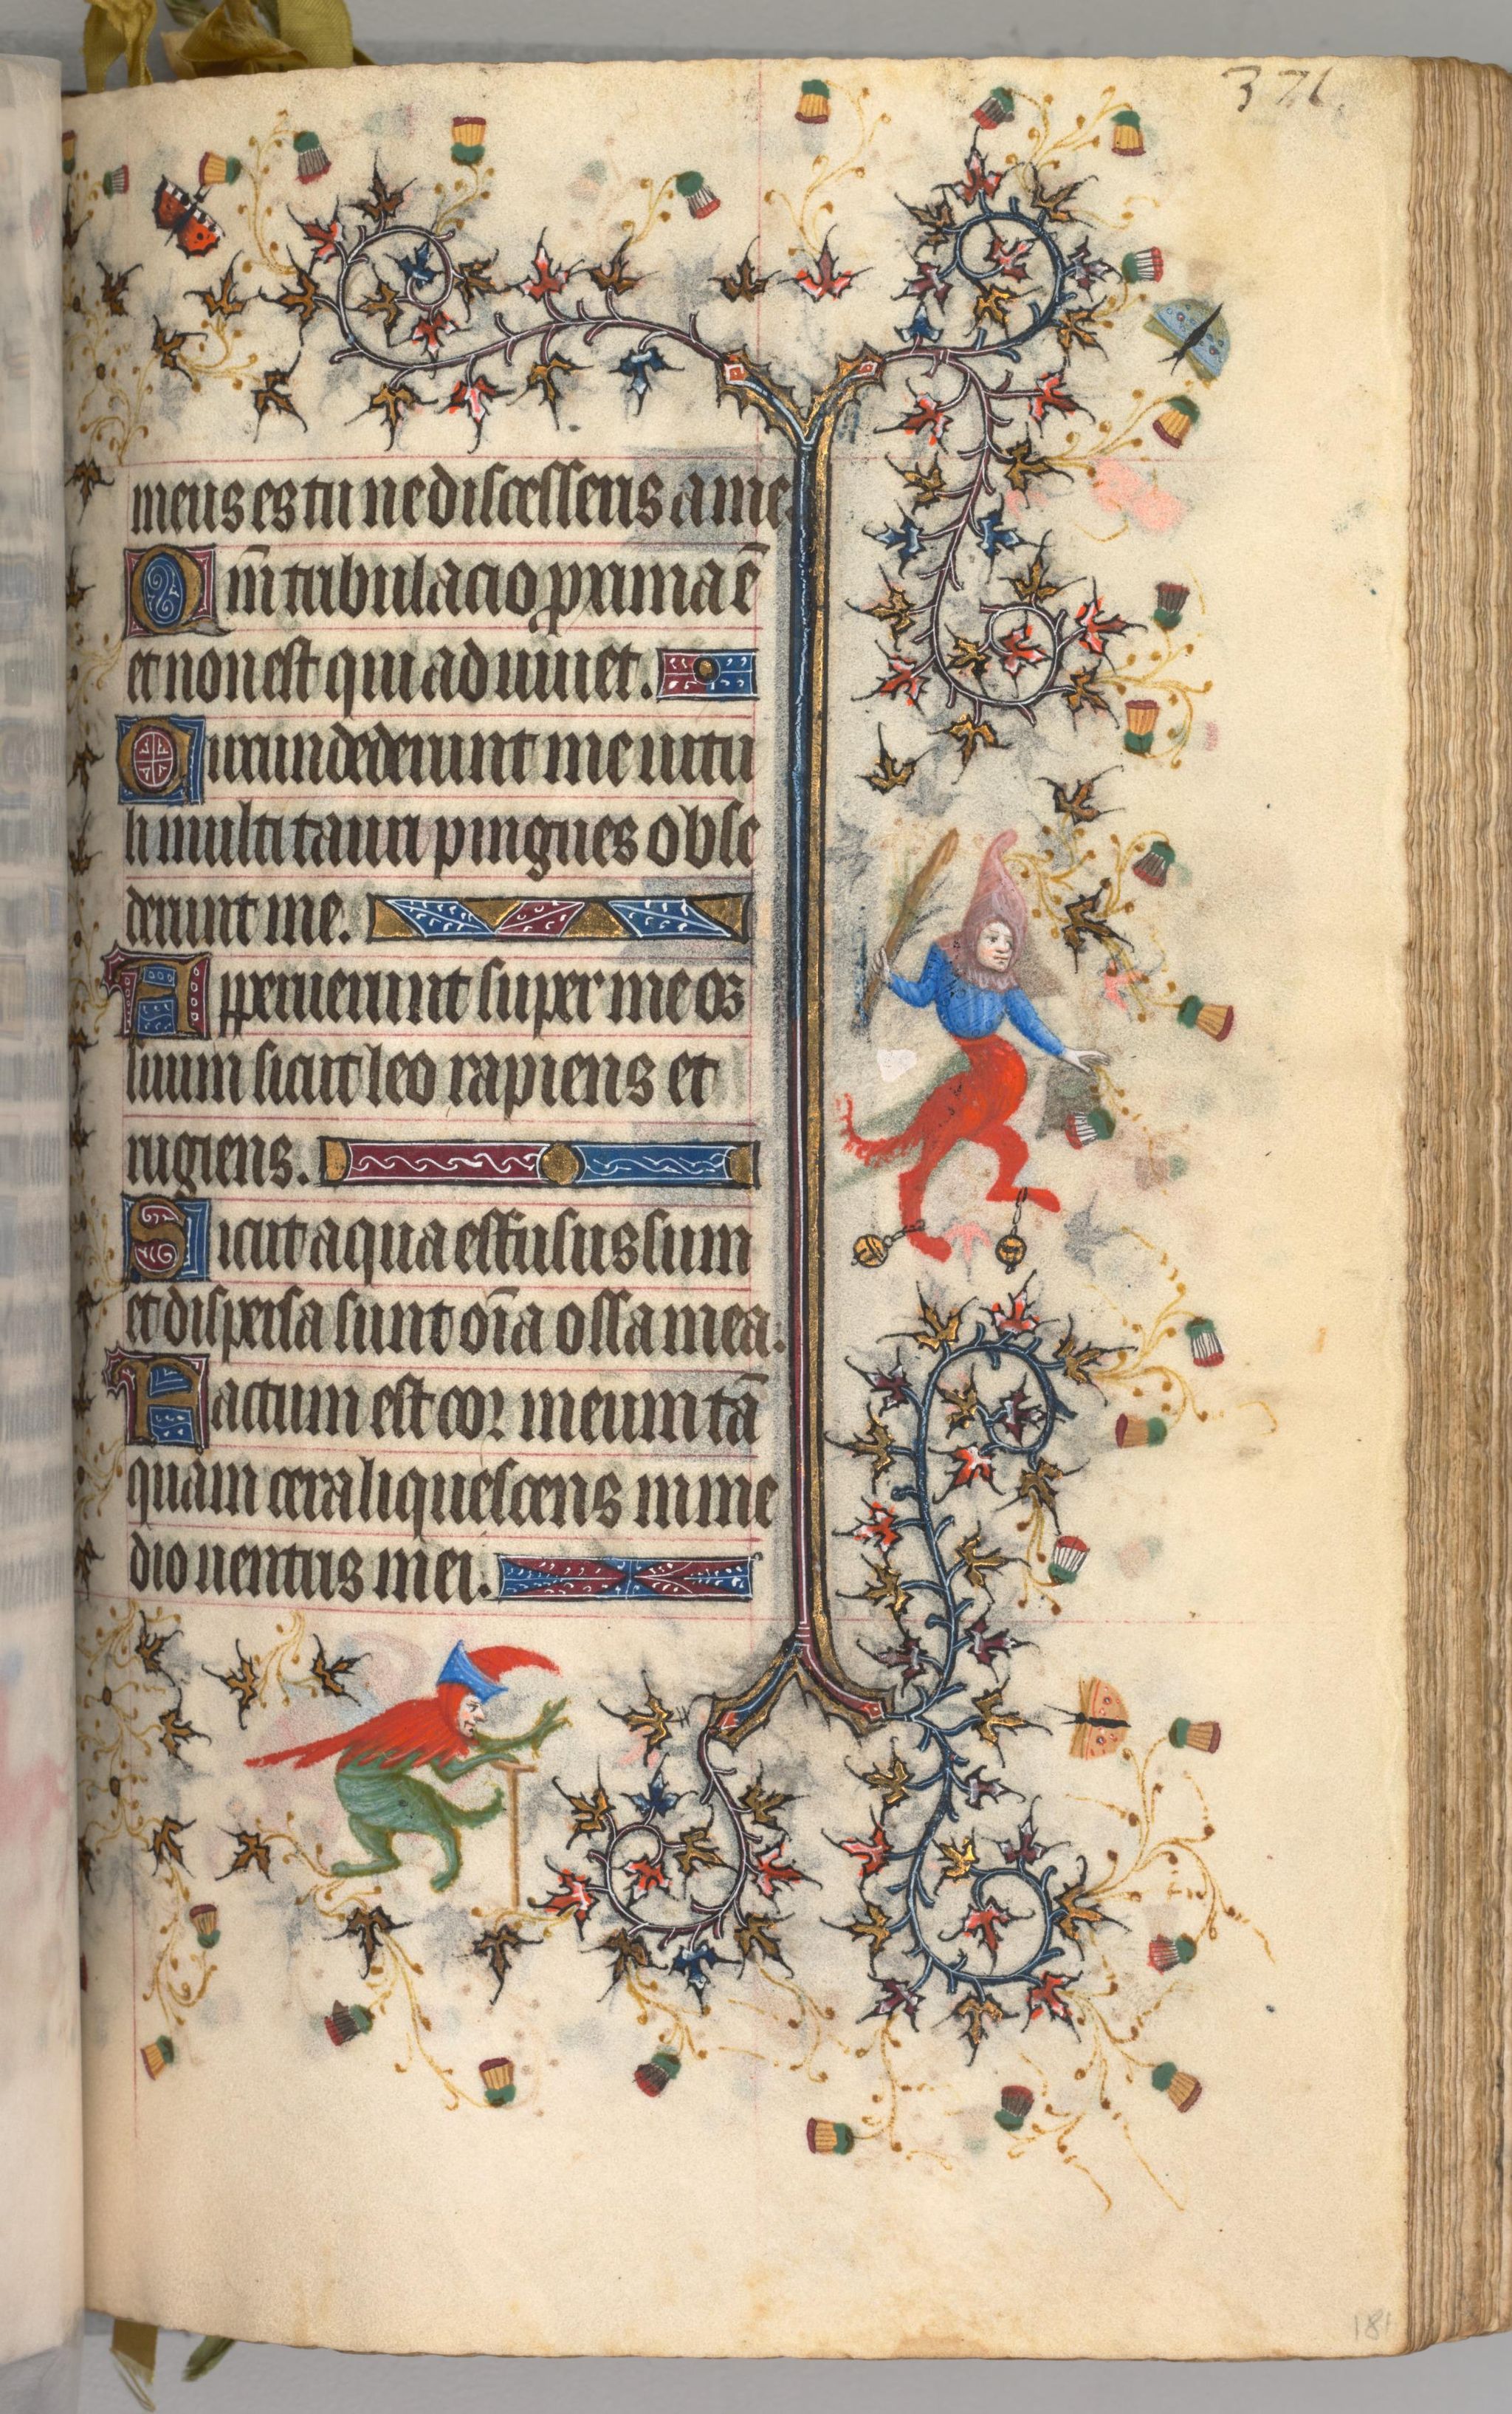 371.
meus es tu ne discesseris a me
Qm̄ tribulacio proxima ē
et non est qui adiuuet.
Circumdederunt me uitu
li multi tauri pingues obse
derunt me.
Apperuerunt super me os
suum sicut leo rapiens et
rugiens.
Sicut aqua effusus sum
et dispersa sunt oīa ossa mea.
Factum est cor meum tā
quam cera liquescens in me
dio uentris mei.
181